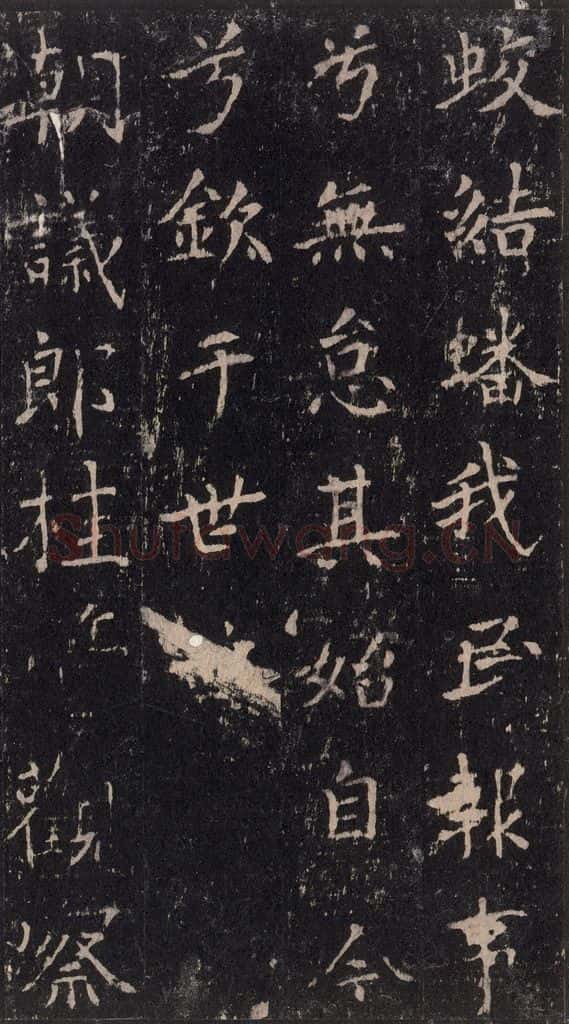 蛟結蟠我民報事
兮無怠其始自今
兮欽于世
朝議郎桂觀察
Shufawang.CN